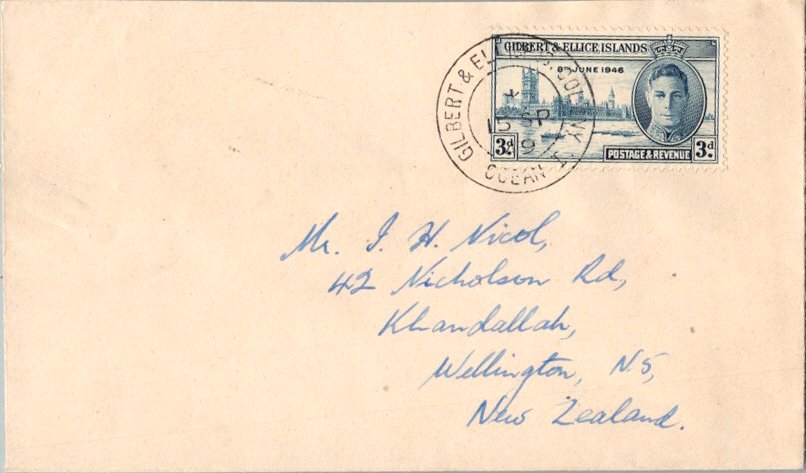 GILBERT & ELLICE ISLANDS
8TH JUNE 1946
3d.
POSTAGE & REVENUE
3d.
GILBERT & EL COLONY
15 SP
OCEAN
Mr. I. H. Nicol,
42 Nicholson Rd,
Khandallah,
Wellington, N5,
New Zealand.